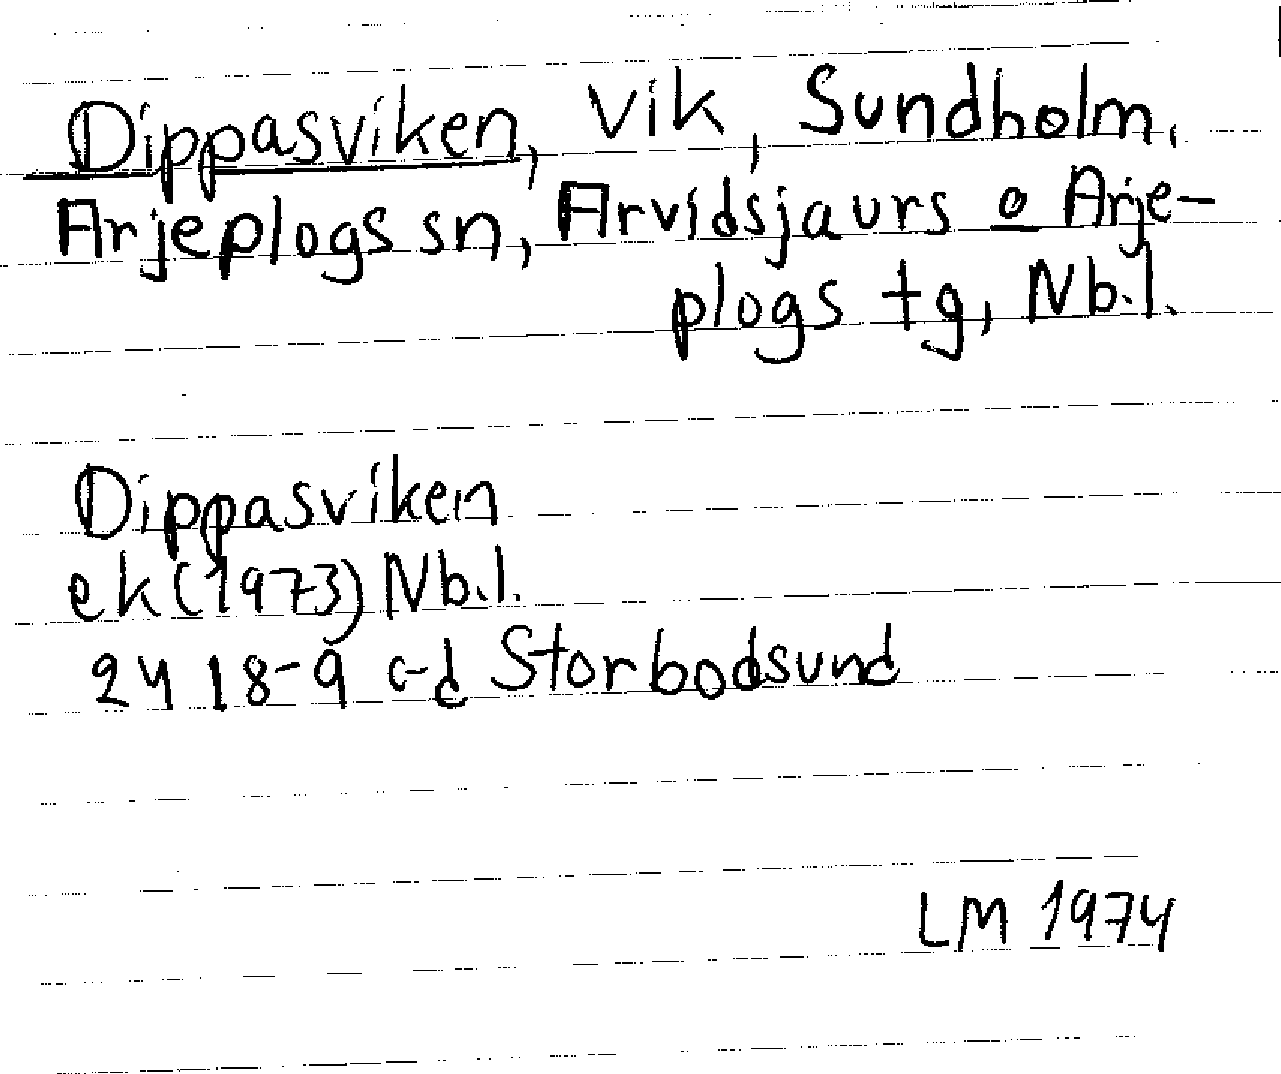 Dippasviken, Vik, Sundholm,
Arjeplogs sn, Arvidsjaurs o Arje-
plogs tg, Nb.l.
Dippasviken
ek (1973) Nb.l.
24 I 8-9 c-d Storbodsund
LM 1974